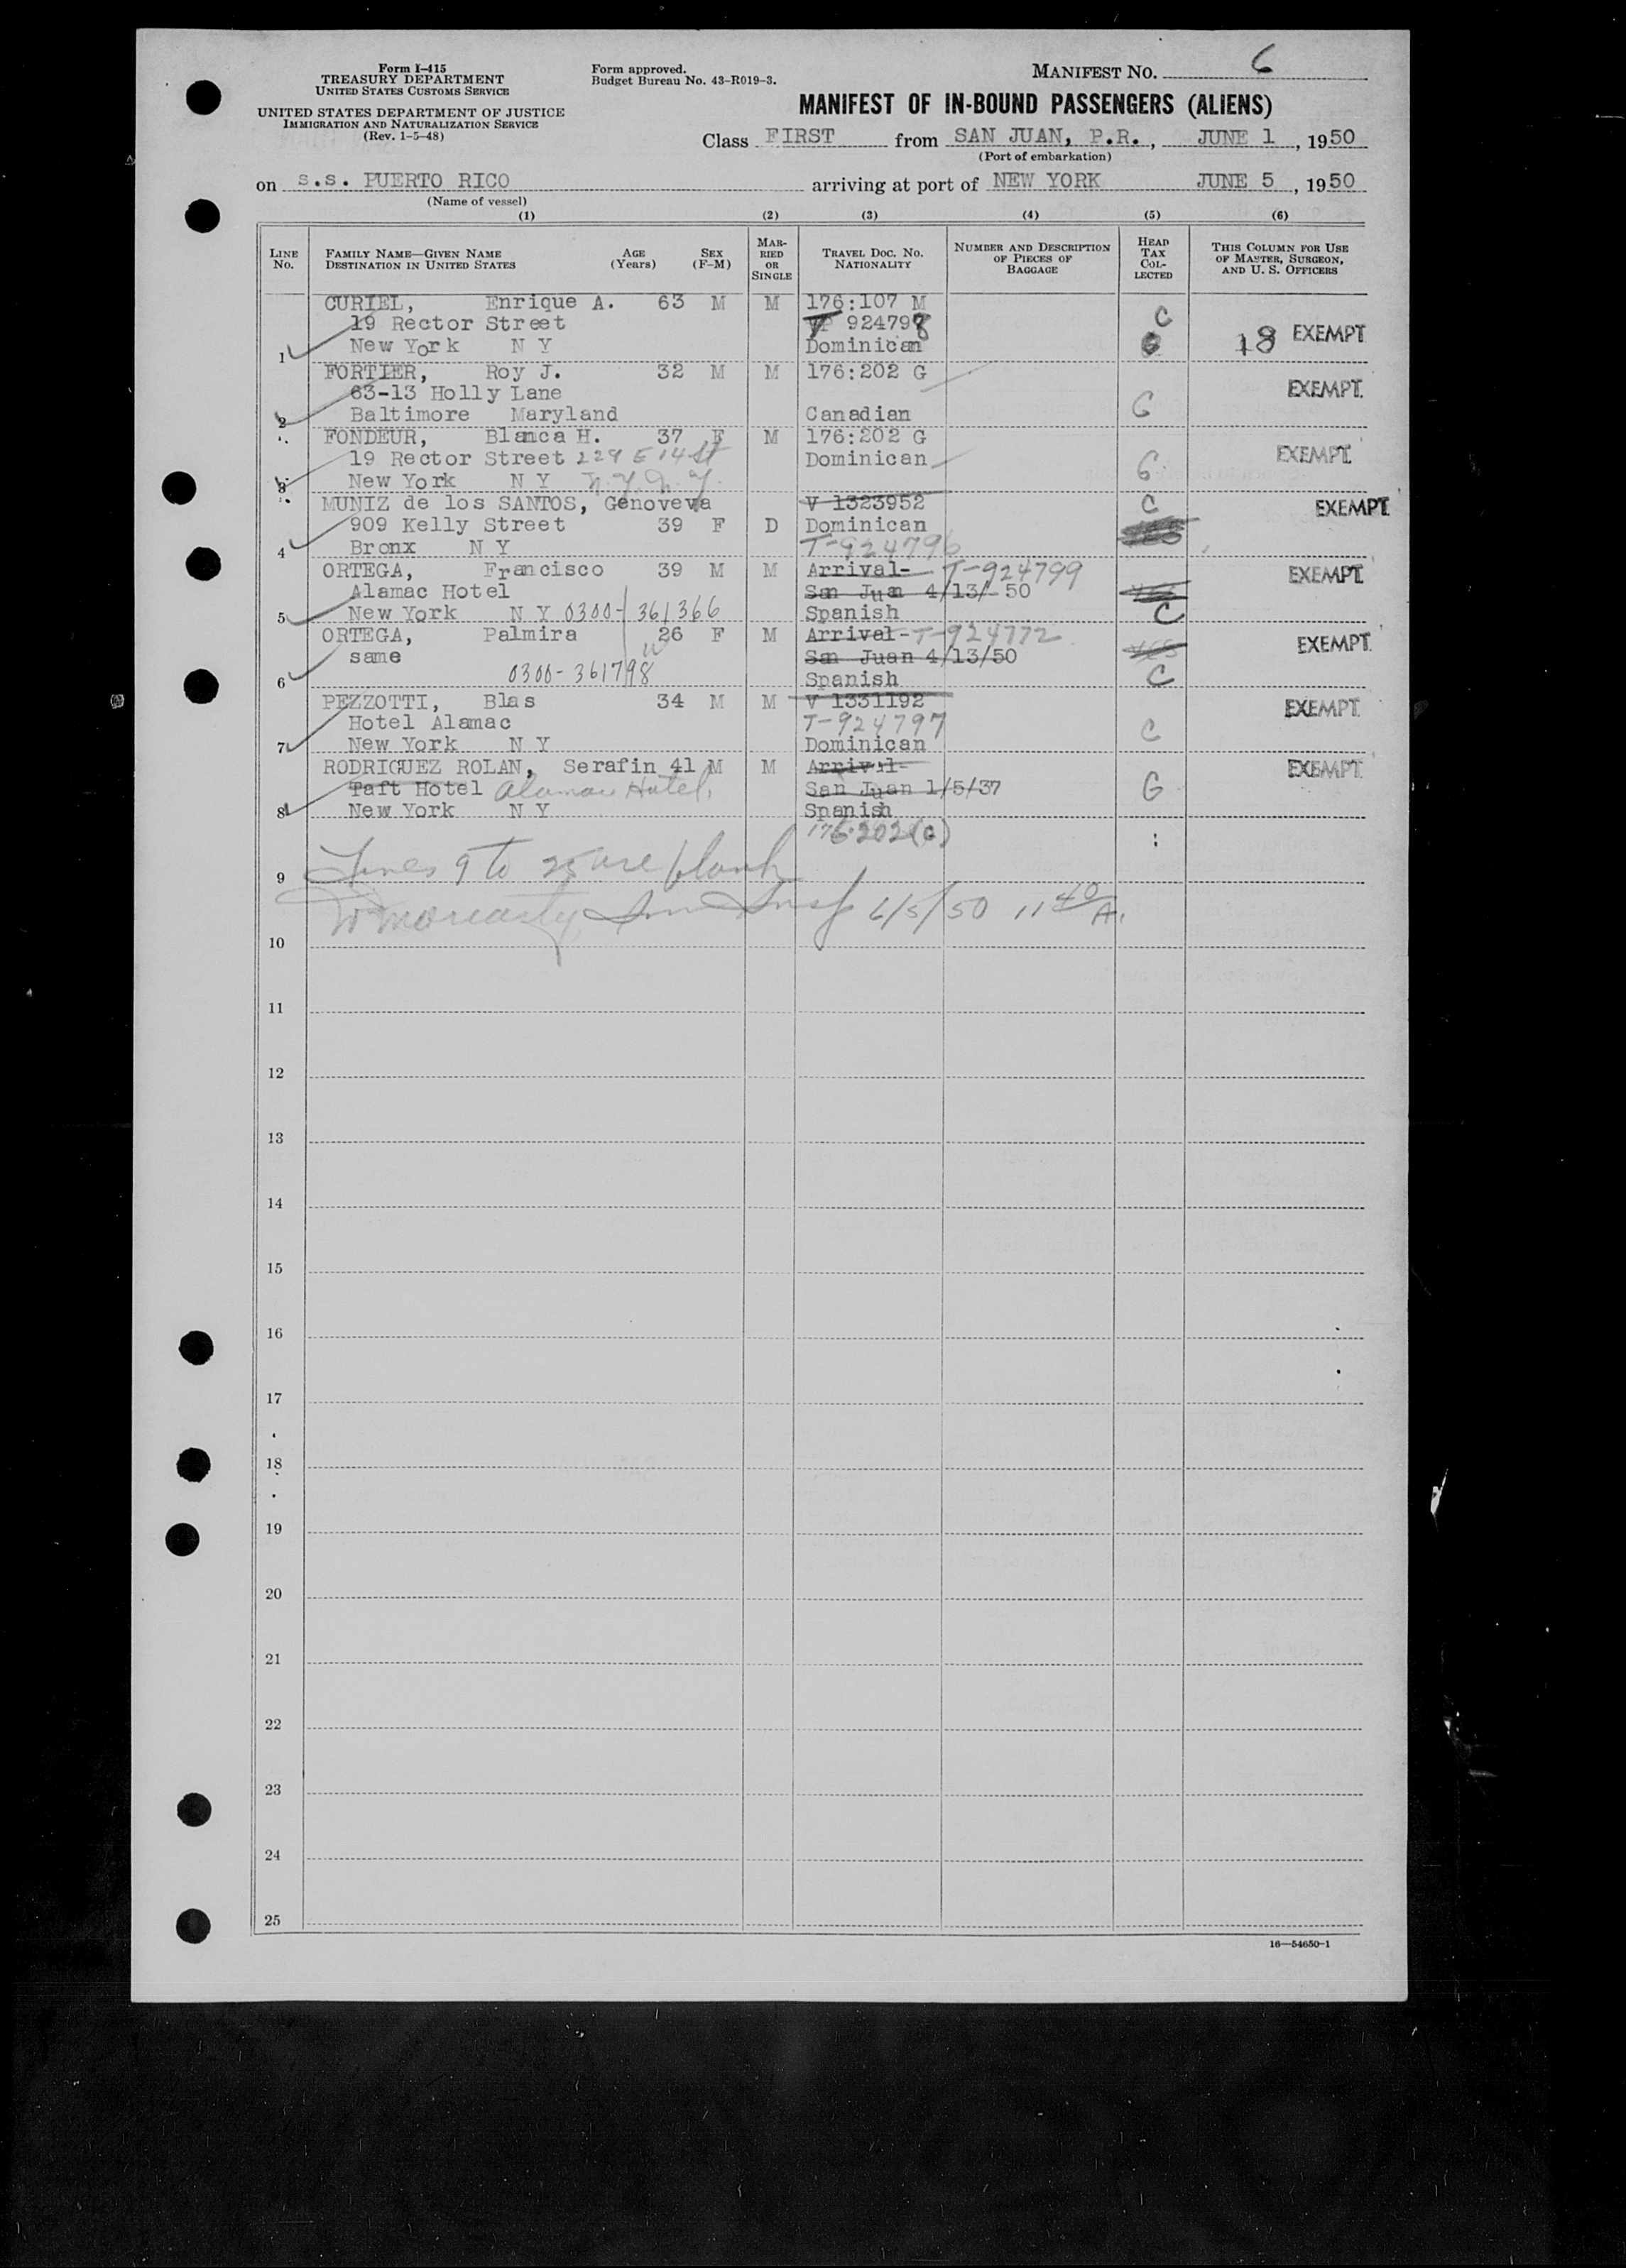 Form I-415
TREASURY DEPARTMENT
UNITED STATES CUSTOMS SERVICE
UNITED STATES DEPARTMENT OF JUSTICE
IMMIGRATION AND NATURALIZATION SERVICE
(Rev. 1-5-48)
Form approved.
Budget Bureau No. 43-R019-3.
MANIFEST NO. 6
MANIFEST OF IN-BOUND PASSENGERS (ALIENS)
Class FIRST from SAN JUAN, P.R., JUNE 1, 1950
(Port of embarkation)
on s.s. PUERTO RICO arriving at port of NEW YORK JUNE 5, 1950
(Name of vessel)
(1) (2) (3) (4) (5) (6)
LINE No.
FAMILY NAME—GIVEN NAME
DESTINATION IN UNITED STATES
AGE (Years)
SEX (F-M)
MARRIED OR SINGLE
TRAVEL DOC. NO.
NATIONALITY
NUMBER AND DESCRIPTION OF PIECES OF BAGGAGE
HEAD TAX COLLECTED
THIS COLUMN FOR USE OF MASTER, SURGEON, AND U. S. OFFICERS
CURIEL, Enrique A. 63 M M 176:107 M
19 Rector Street 924798 C
1 New York N Y Dominican 18 EXEMPT
FORTIER, Roy J. 32 M M 176:202 G
63-13 Holly Lane EXEMPT
2 Baltimore Maryland Canadian G
FONDEUR, Blanca H. 37 F M 176:202 G
19 Rector Street 229 E 14 St Dominican EXEMPT
3 New York N Y N.Y. N.Y. G
MUNIZ de los SANTOS, Genoveva V 1323952 C EXEMPT
909 Kelly Street 39 F D Dominican
4 Bronx N Y T-924796
ORTEGA, Francisco 39 M M Arrival- T-924799 EXEMPT
Alamac Hotel San Juan 4/13/-50
5 New York N Y 0300-361366 Spanish C
ORTEGA, Palmira 26 F M Arrival- T-924772 EXEMPT
same San Juan 4/13/50 yes
6 0300-361798 Spanish C
PEZZOTTI, Blas 34 M M V 1331192 EXEMPT
Hotel Alamac T-924797
7 New York N Y Dominican C
RODRIGUEZ ROLAN, Serafin 41 M M Arrival- EXEMPT
Taft Hotel Alamac Hotel San Juan 1/5/37 G
8 New York N Y Spanish
176.202(G)
9 Lines 9 to 25 are blank
W Moriarty Imm Insp 6/5/50 11 40 A.
10
11
12
13
14
15
16
17
18
19
20
21
22
23
24
25
16—54650-1